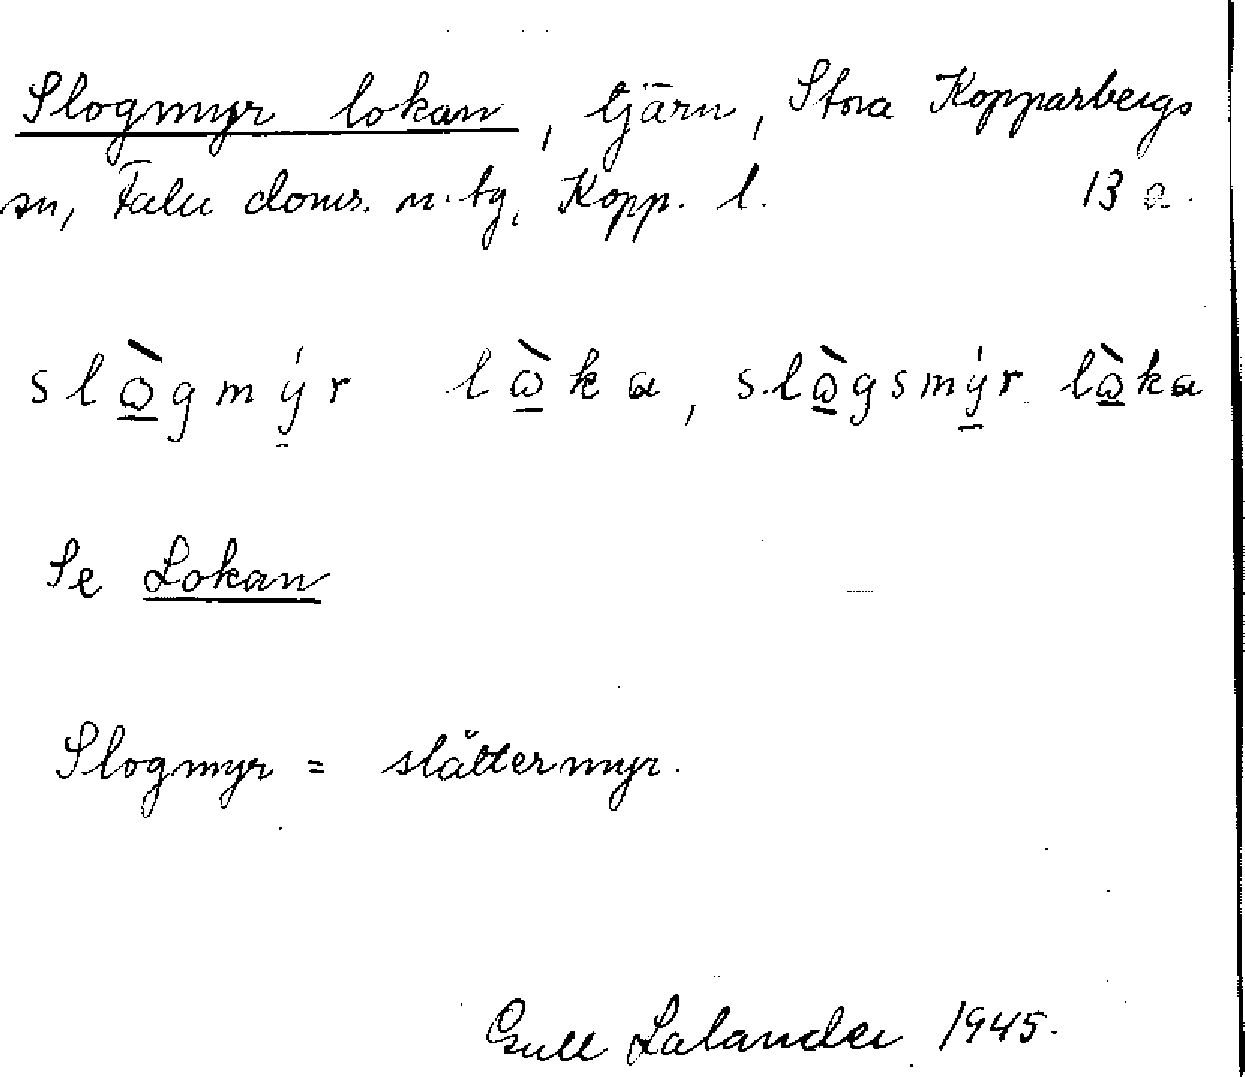 Slogmyr lokan, tjärn, Stora Kopparbergs
sn, Falu doms. n. tg, Kopp. l. 13 a.
slὼ̲gmý̲r lὼ̲ka, slὼ̲gsmý̲r lὼ̲ka
Se Lokan
Slogmyr = slåttermyr.
Gull Lalander 1945.